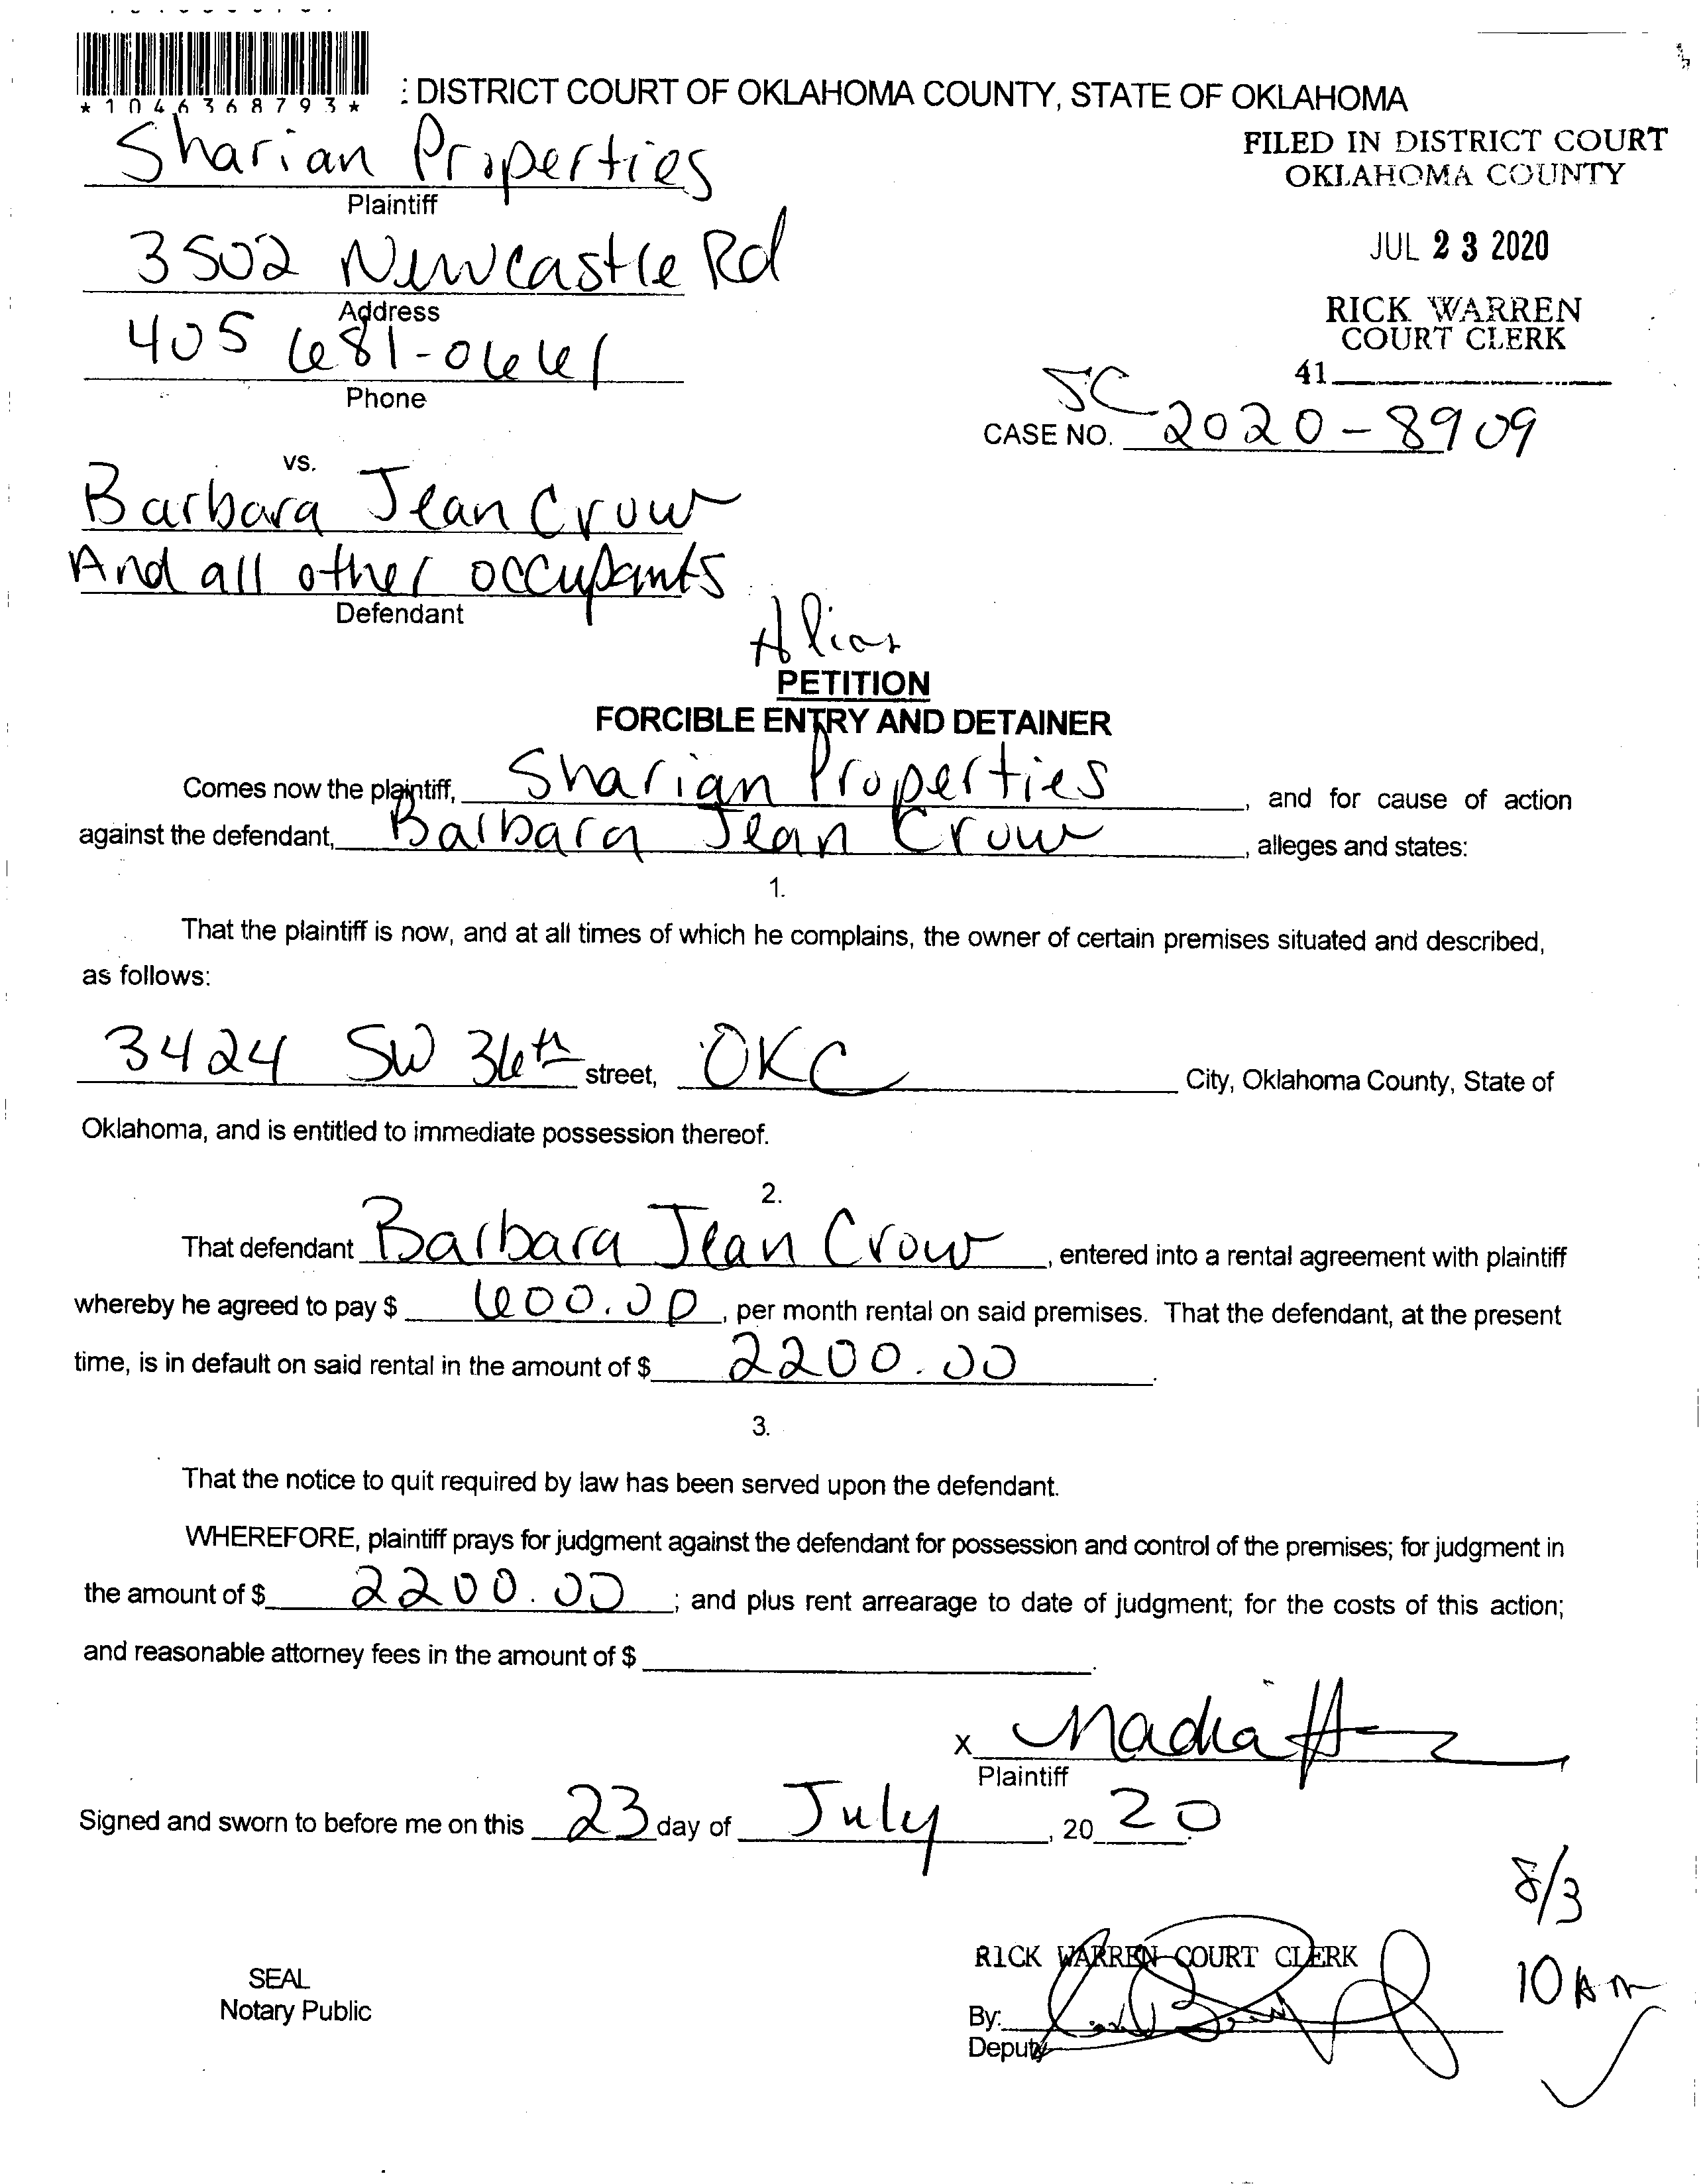 *1046368793*
: DISTRICT COURT OF OKLAHOMA COUNTY, STATE OF OKLAHOMA
FILED IN DISTRICT COURT
OKLAHOMA COUNTY
JUL 23 2020
RICK WARREN
COURT CLERK
41
Sharian Properties
Plaintiff
3502 Newcastle Rd
Address
405 681-0661
Phone
SC
CASE NO. 2020-8909
vs.
Barbara Jean Crow
And all other occupants
Defendant
Alias
PETITION
FORCIBLE ENTRY AND DETAINER
Comes now the plaintiff, Sharian Properties, and for cause of action
against the defendant, Barbara Jean Crow, alleges and states:
1.
That the plaintiff is now, and at all times of which he complains, the owner of certain premises situated and described,
as follows:
3424 SW 36th street, OKC City, Oklahoma County, State of
Oklahoma, and is entitled to immediate possession thereof.
2.
That defendant Barbara Jean Crow, entered into a rental agreement with plaintiff
whereby he agreed to pay $ 600.00, per month rental on said premises. That the defendant, at the present
time, is in default on said rental in the amount of $ 2200.00.
3.
That the notice to quit required by law has been served upon the defendant.
WHEREFORE, plaintiff prays for judgment against the defendant for possession and control of the premises; for judgment in
the amount of $ 2200.00; and plus rent arrearage to date of judgment; for the costs of this action;
and reasonable attorney fees in the amount of $ .
x Nadia
Plaintiff
Signed and sworn to before me on this 23 day of July, 20 20
8/3
10 AM
RICK WARREN COURT CLERK
SEAL
Notary Public
By:
Deputy